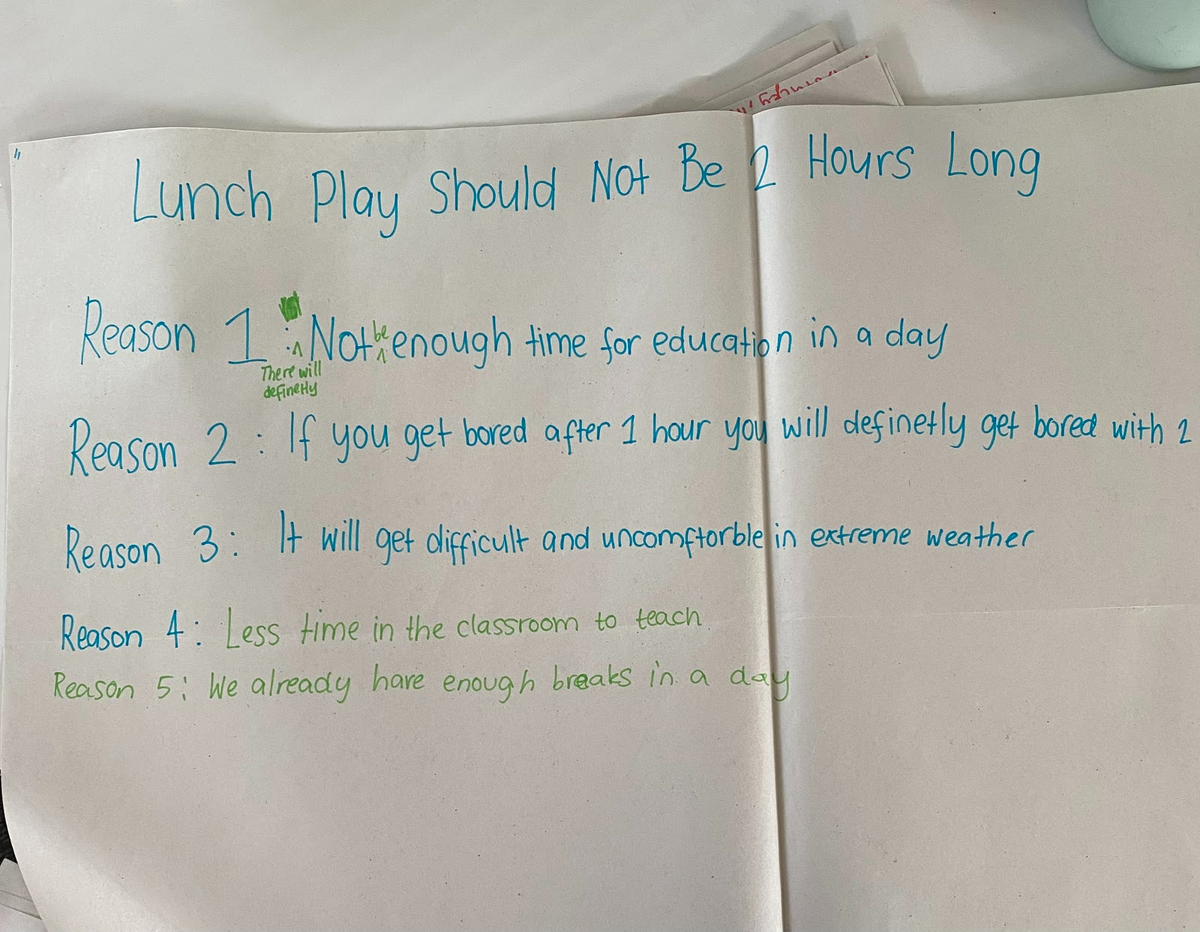 Lunch Play Should Not Be 2 Hours Long
Reason 1: There will definetly Not be enough time for education in a day
Reason 2: If you get bored after 1 hour you will definetly get bored with 2
Reason 3: It will get difficult and uncomftorble in extreme weather
Reason 4: Less time in the classroom to teach
Reason 5: We already have enough breaks in a day